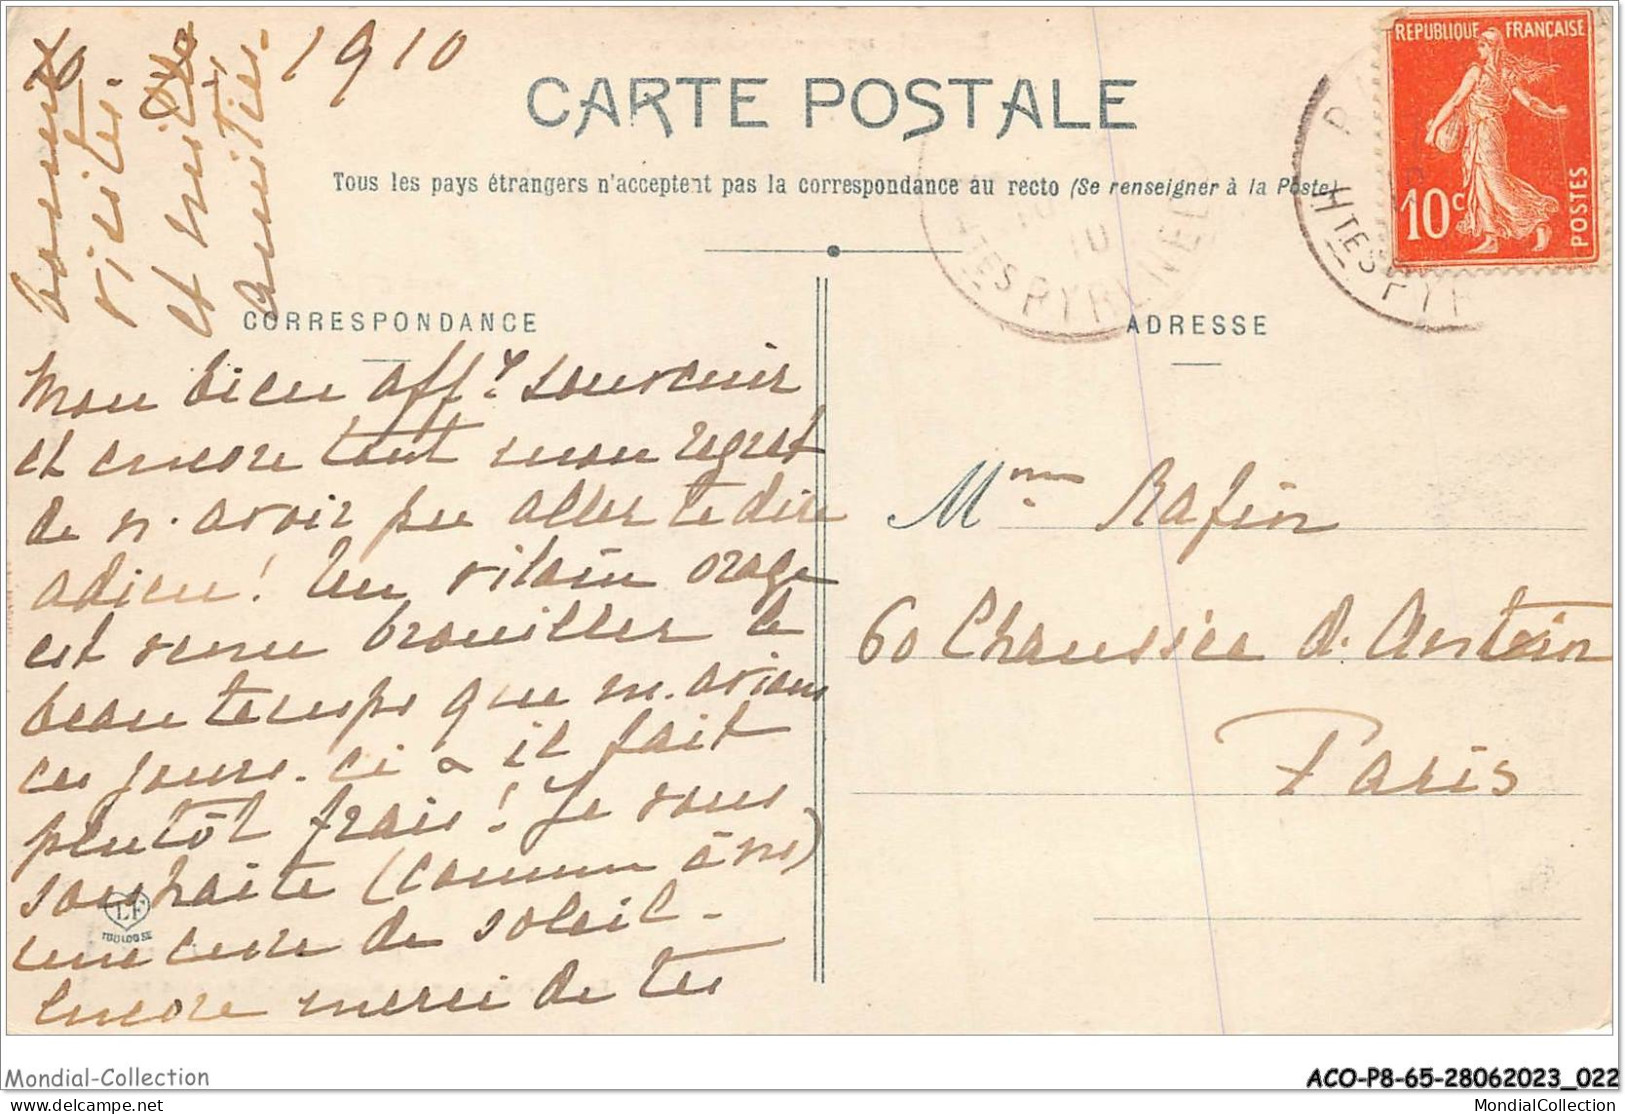 1910
CARTE POSTALE
Tous les pays étrangers n'acceptent pas la correspondance au recto (Se renseigner à la Poste)
REPUBLIQUE FRANÇAISE
10c
POSTES
HTES PYRENEES
HTES PYR
CORRESPONDANCE
ADRESSE
Mon bien aff. souvenir
et encore tout mon regret
de n. avoir pu aller te dire
adieu! Un vilain orage
est venu brouiller le
beau temps que n. avions
ces jours-ci & il fait
plutôt frais! Je vous
souhaite (comme à ns)
une cure de soleil -
Encore merci de tes
bonnes
visites.
et mille
amitiés.
Mme Rafin
60 Chaussée d. Antin
Paris
LF
TOULOUSE
Mondial-Collection
ACO-P8-65-28062023_022
delcampe.net
MondialCollection